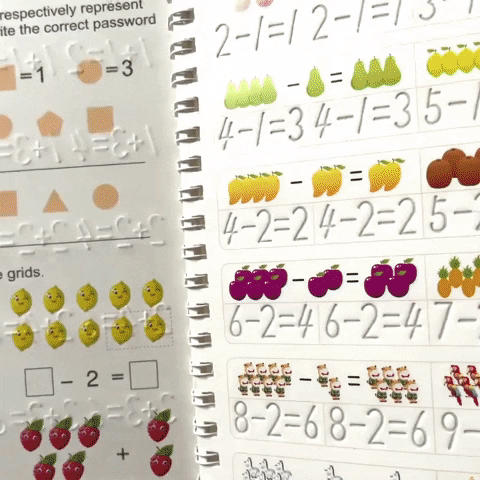 respectively represent
ite the correct password
=1 =3
e grids.
- 2 =
+
2-1=1 2-1=1 3-
- =
4-1=3 4-1=3 5-1
- =
4-2=2 4-2=2 5-2
- =
6-2=4 6-2=4 7-
- =
8-2=6 8-2=6 9-